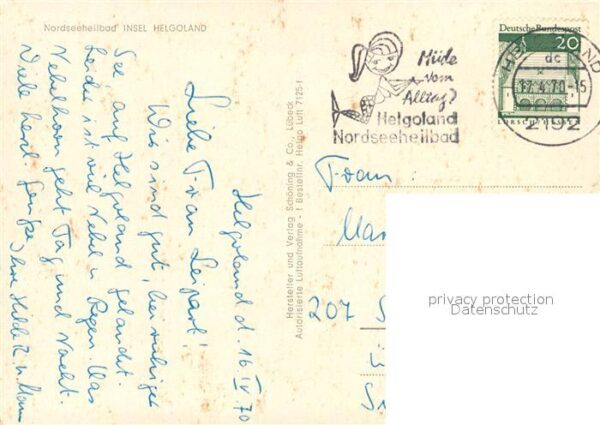 Nordseeheilbad INSEL HELGOLAND
Helgoland d. 16 IV 70
Liebe Frau Leipart!
Wir sind gut, bei ruhiger
See auf Helgoland gelandet.
Leider ist viel Nebel u. Regen. Das
Nebelhorn geht Tag und Nacht.
Viele herzl. Grüße
Ihre Hilde R. u. Mann
Hersteller und Verlag Schöning & Co., Lübeck
Autorisierte Luftaufnahme - ! Bestellnr. Helgo Luft 7125-f
Müde
vom
Alltag?
Helgoland
Nordseeheilbad
Deutsche Bundespost
20
dc
17.4.70-15
2192
Frau:
207
privacy protection
Datenschutz